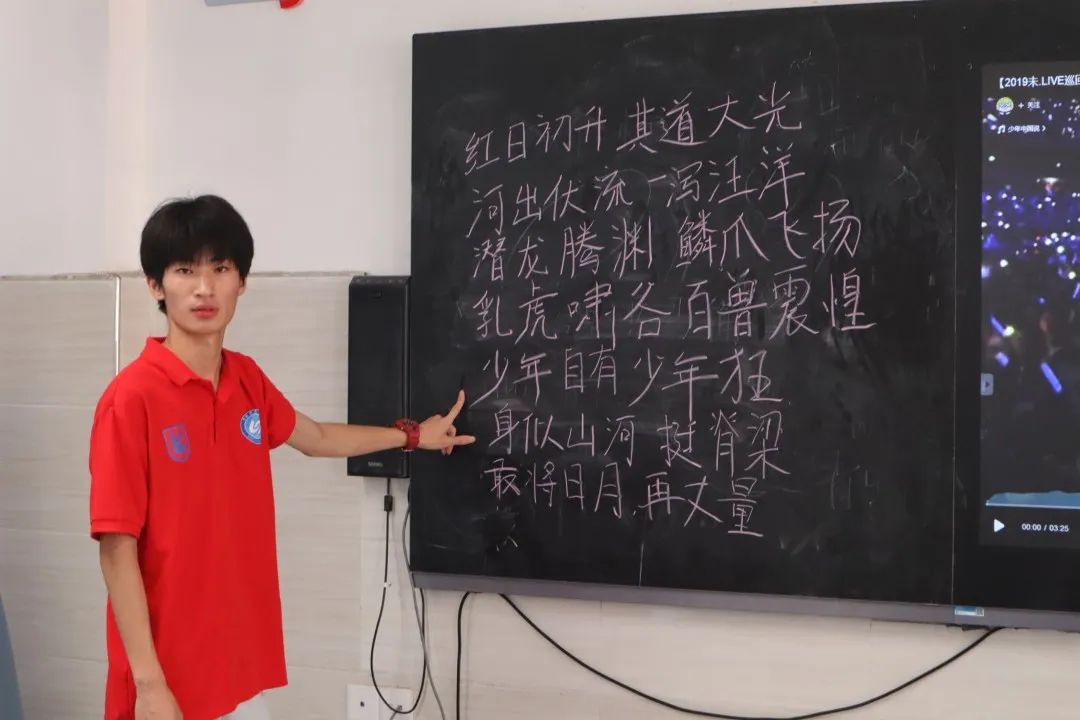 红日初升 其道大光
河出伏流 一泻汪洋
潜龙腾渊 鳞爪飞扬
乳虎啸谷 百兽震惶
少年自有少年狂
身似山河 挺脊梁
敢将日月 再丈量
【2019未.LIVE巡回
+ 关注
少年中国说 >
00:00 / 03:25